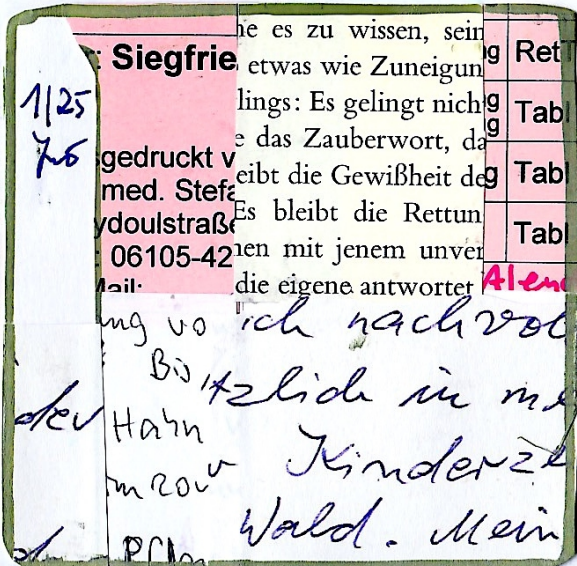 : Siegfrie
1/25
gedruckt v
med. Stefa
ydoulstraße
: 06105-42
Mail:
ne es zu wissen, sein
etwas wie Zuneigun
lings: Es gelingt nich
e das Zauberwort, da
eibt die Gewißheit de
Es bleibt die Rettun
nen mit jenem unver
die eigene antwortet
g Ret
g
g Tabl
g Tabl
Tabl
Alen
ng vo
Bis
der
Hahn
ich nachvol
tzlich in me
Kinderze
Wald. Mein